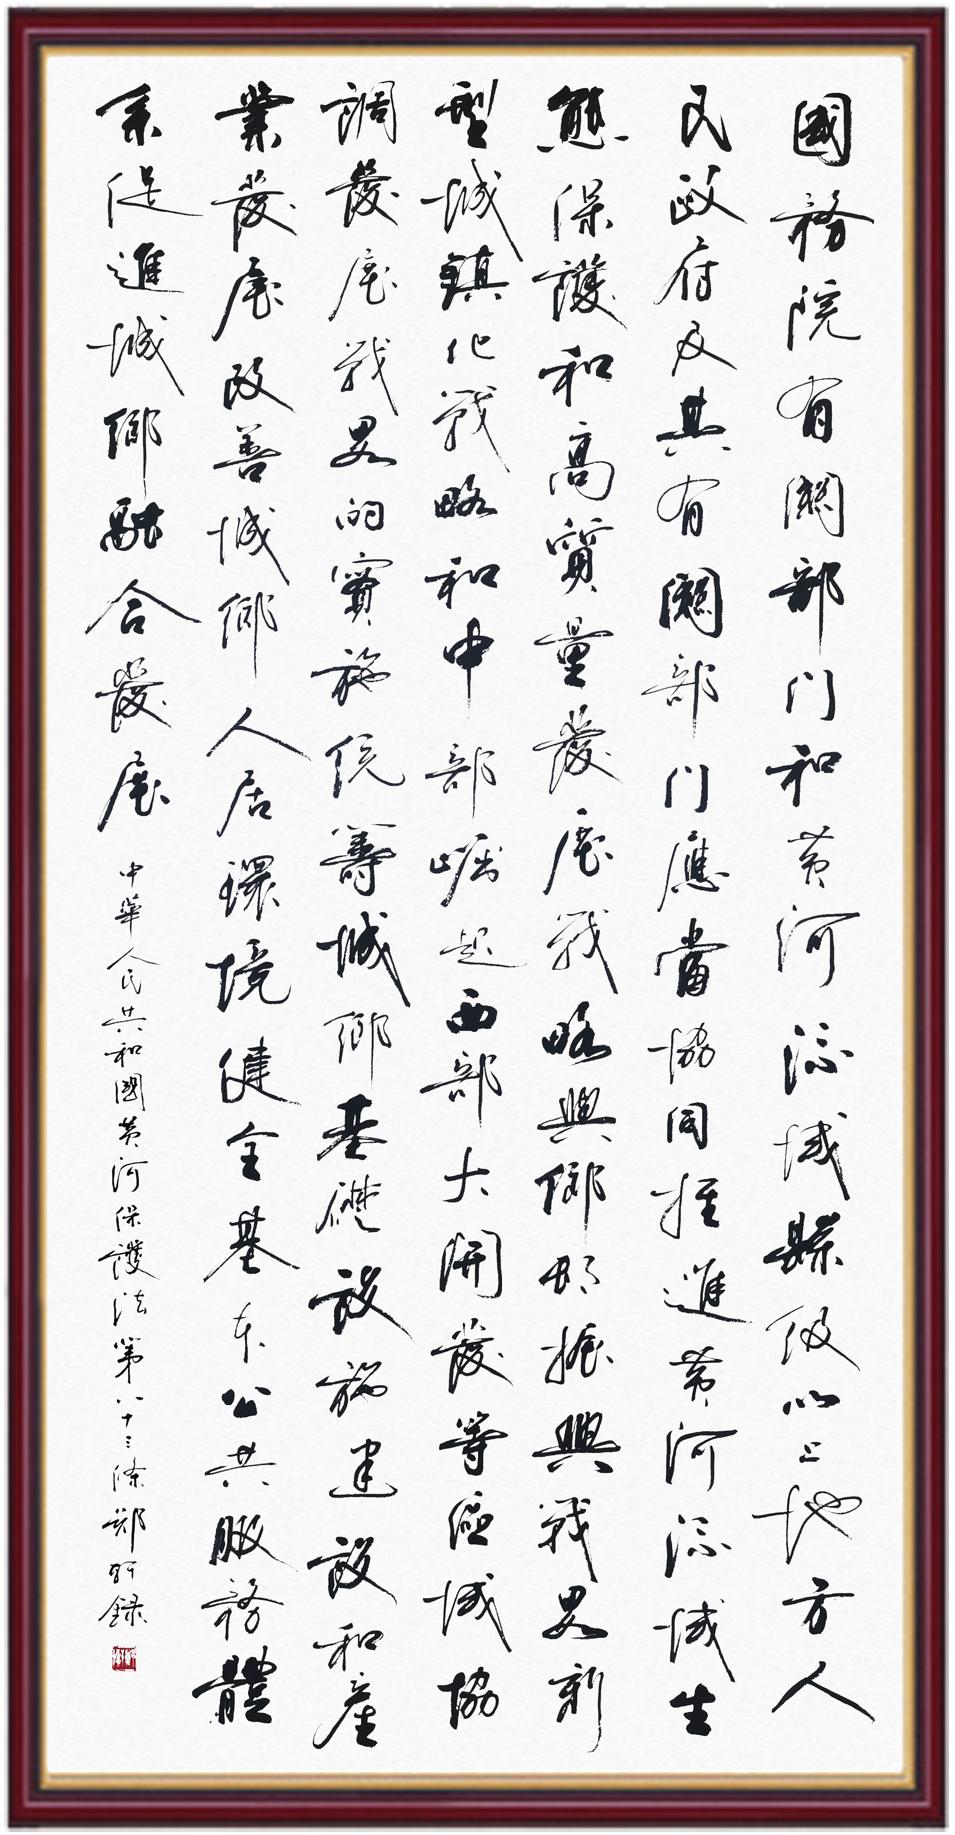 國務院有關部门和黄河流域縣级以上地方人
民政府及其有關部门應當協同推進黄河流域生
態保護和高質量發展戰略與鄉邨振興戰畧新
型城鎮化戰略和中部崛起西部大開發等區域協
調發展戰畧的實施統籌城鄉基礎設施建設和產
業發展改善城鄉人居環境健全基本公共服務體
系促進城鄉融合發展
中華人民共和國黄河保護法第八十三條鄭錄